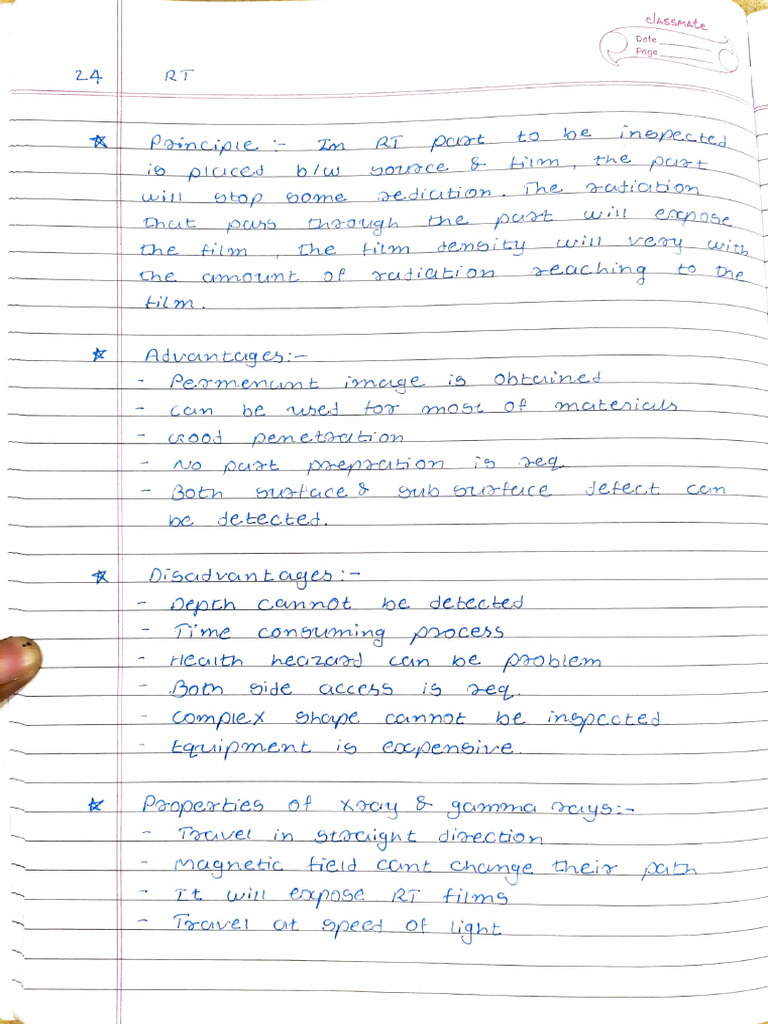 classmate
Date
Page
24 RT
☆ Principle :- In RT part to be inspected
is placed b/w source & film, the part
will stop some rediation. The radiation
that pass through the part will expose
the film, the film density will very with
the amount of radiation reaching to the
film.
☆ Advantages:-
- Permenant image is obtained
- can be used for most of materials
- Good penetration
- No part prepration is req.
- Both surface & sub surface defect can
be detected.
☆ Disadvantages:-
- Depth cannot be detected
- Time consuming process
- Health heazard can be problem
- Both side access is req.
- complex shape cannot be inspected
- Equipment is expensive.
☆ Properties of xray & gamma rays:-
- Travel in straight direction
- Magnetic field cant change their path
- It will expose RT films
- Travel at speed of light